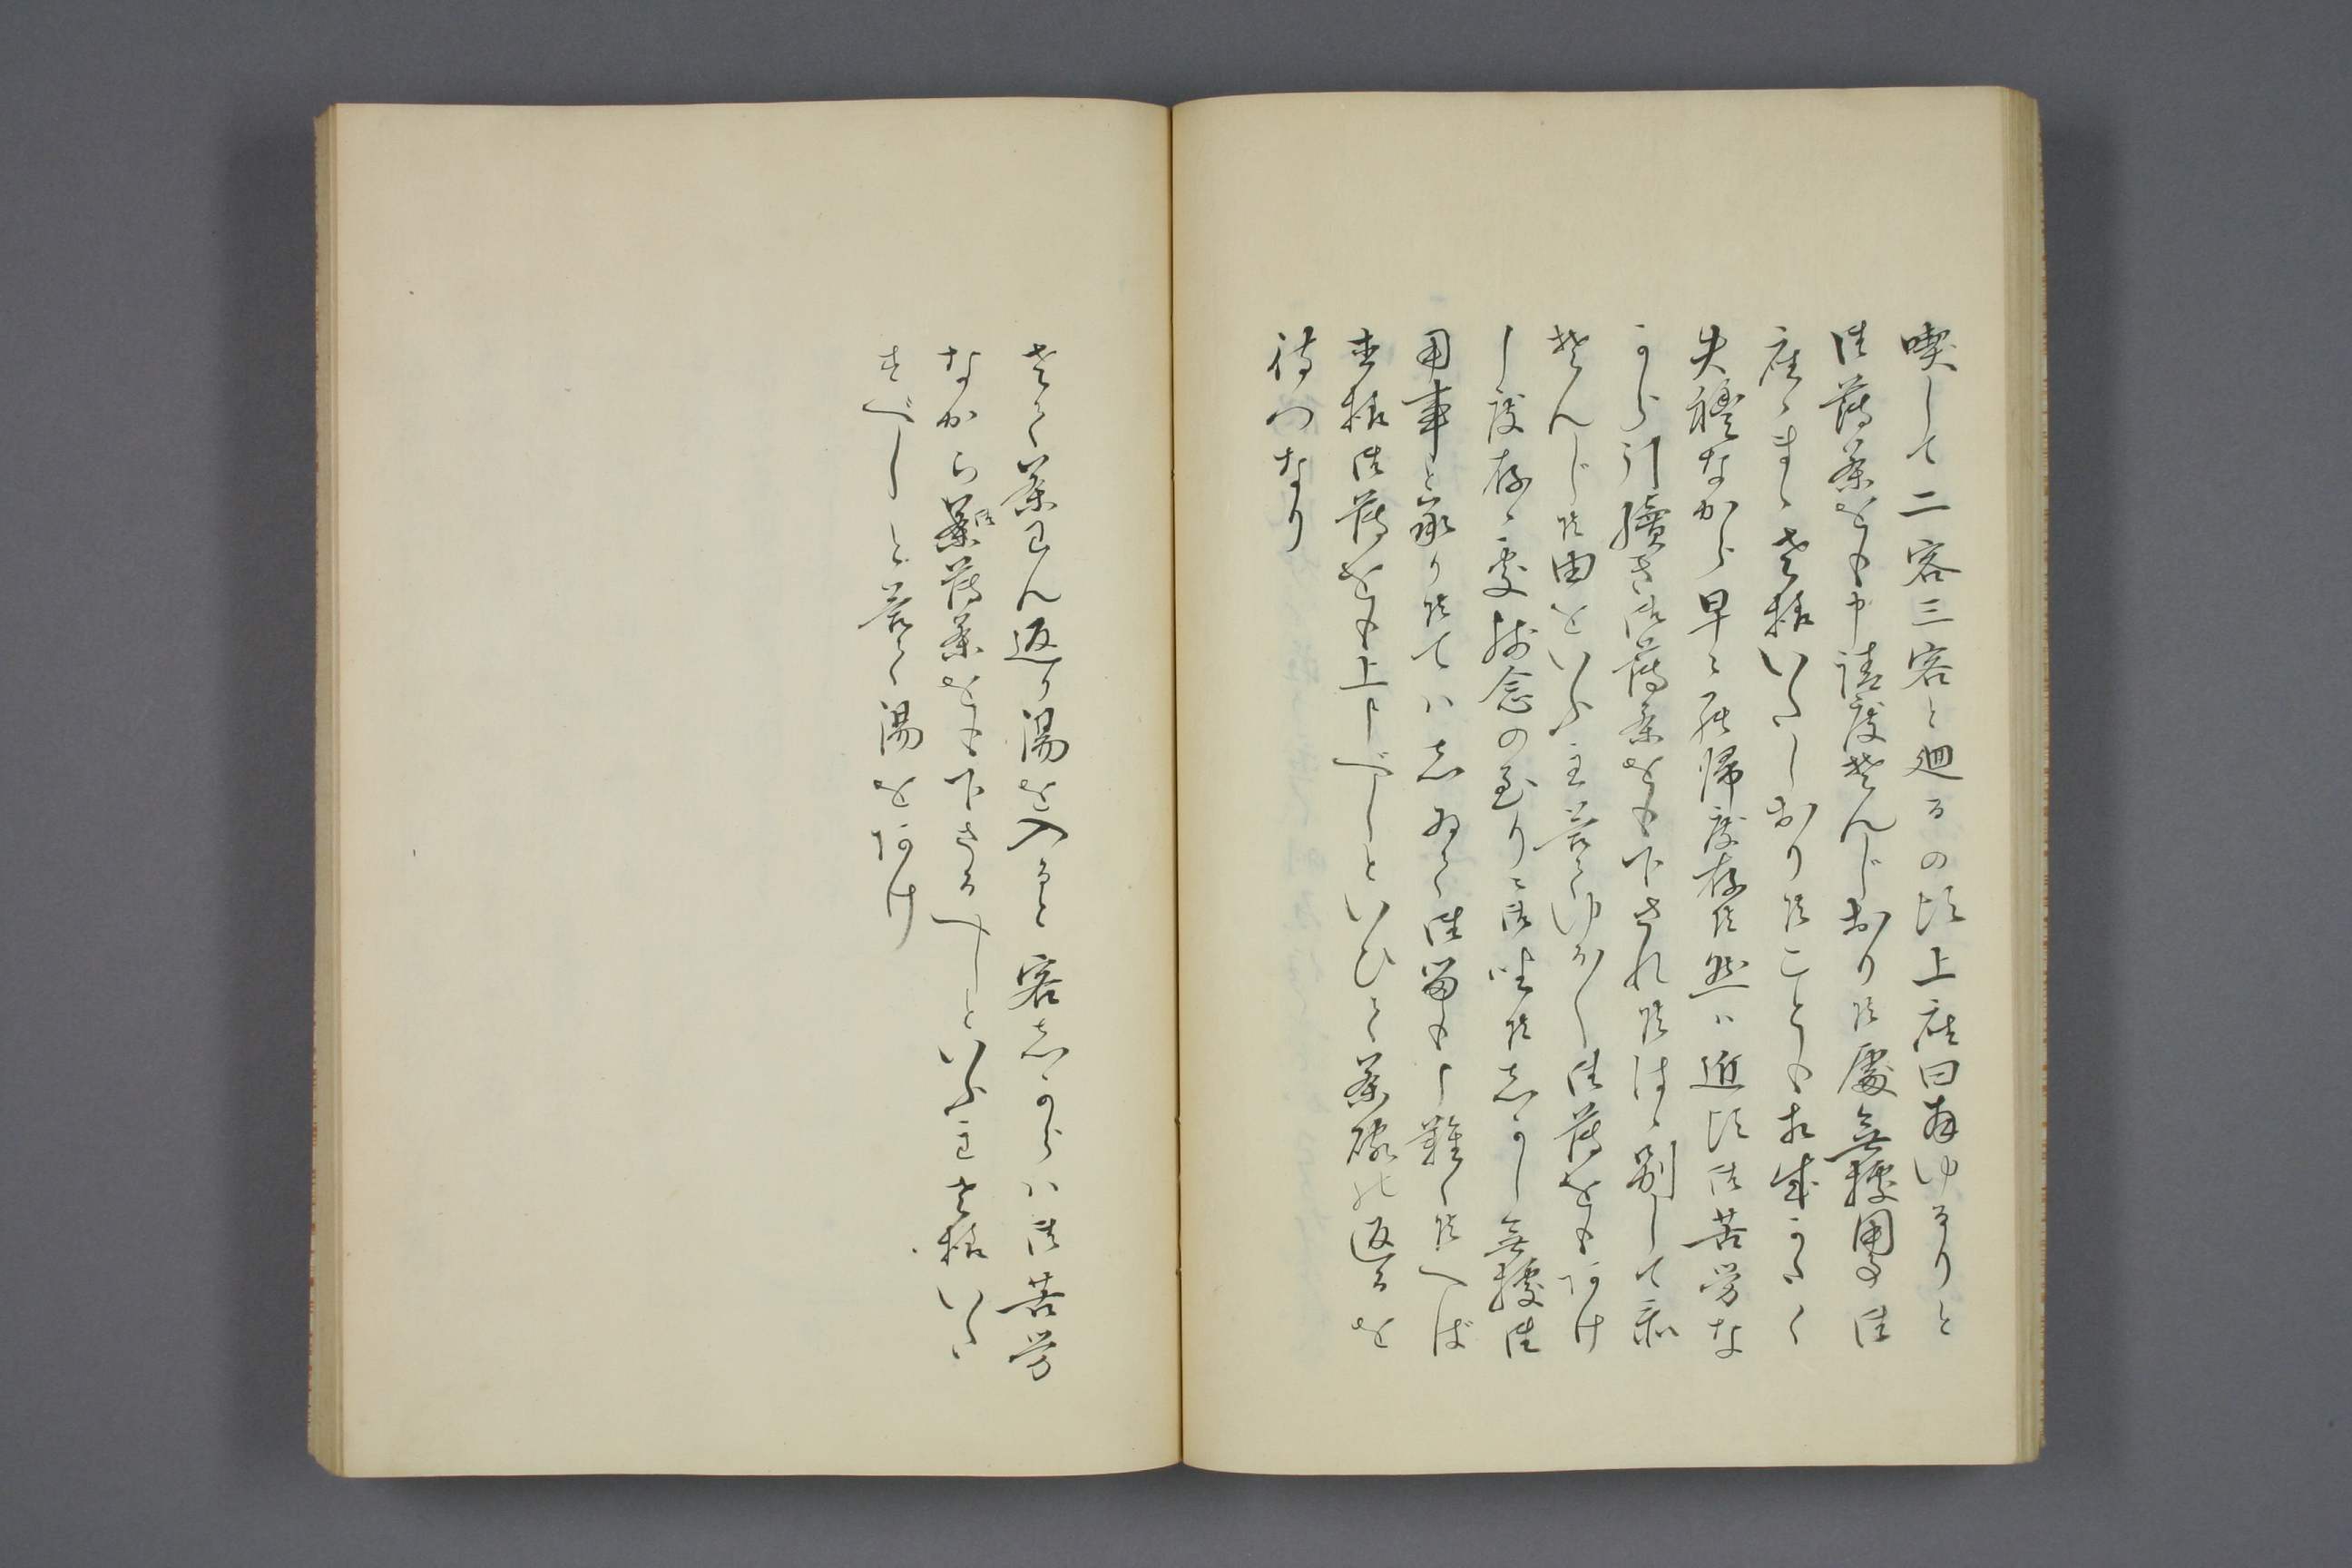 喫して二客三客と廻るの頃上座曰ゆるりと
御薄茶をも申請度ぞんじおり候處無據用事御
座候まゝ左様いたしおり候ことも相成かたく
失禮なから早々罷帰度存候然ハ近頃御苦労な
から引續き御薄茶をも下され候はゝ別して忝
ぞんじ候由をいふ主答てゆかし御薄をもあけ
し度存候處残念の至りに御座候しかし無據御
用事と承り候てハしゐて御留も申難く候へば
左様御薄をも上申べしといひて茶碗の返るを
待つなり
さて茶わん返り湯を入ると客しからハ御苦労
なから御薄茶をも下さるべしといふ主左様いた
すべしと答て湯をあけ